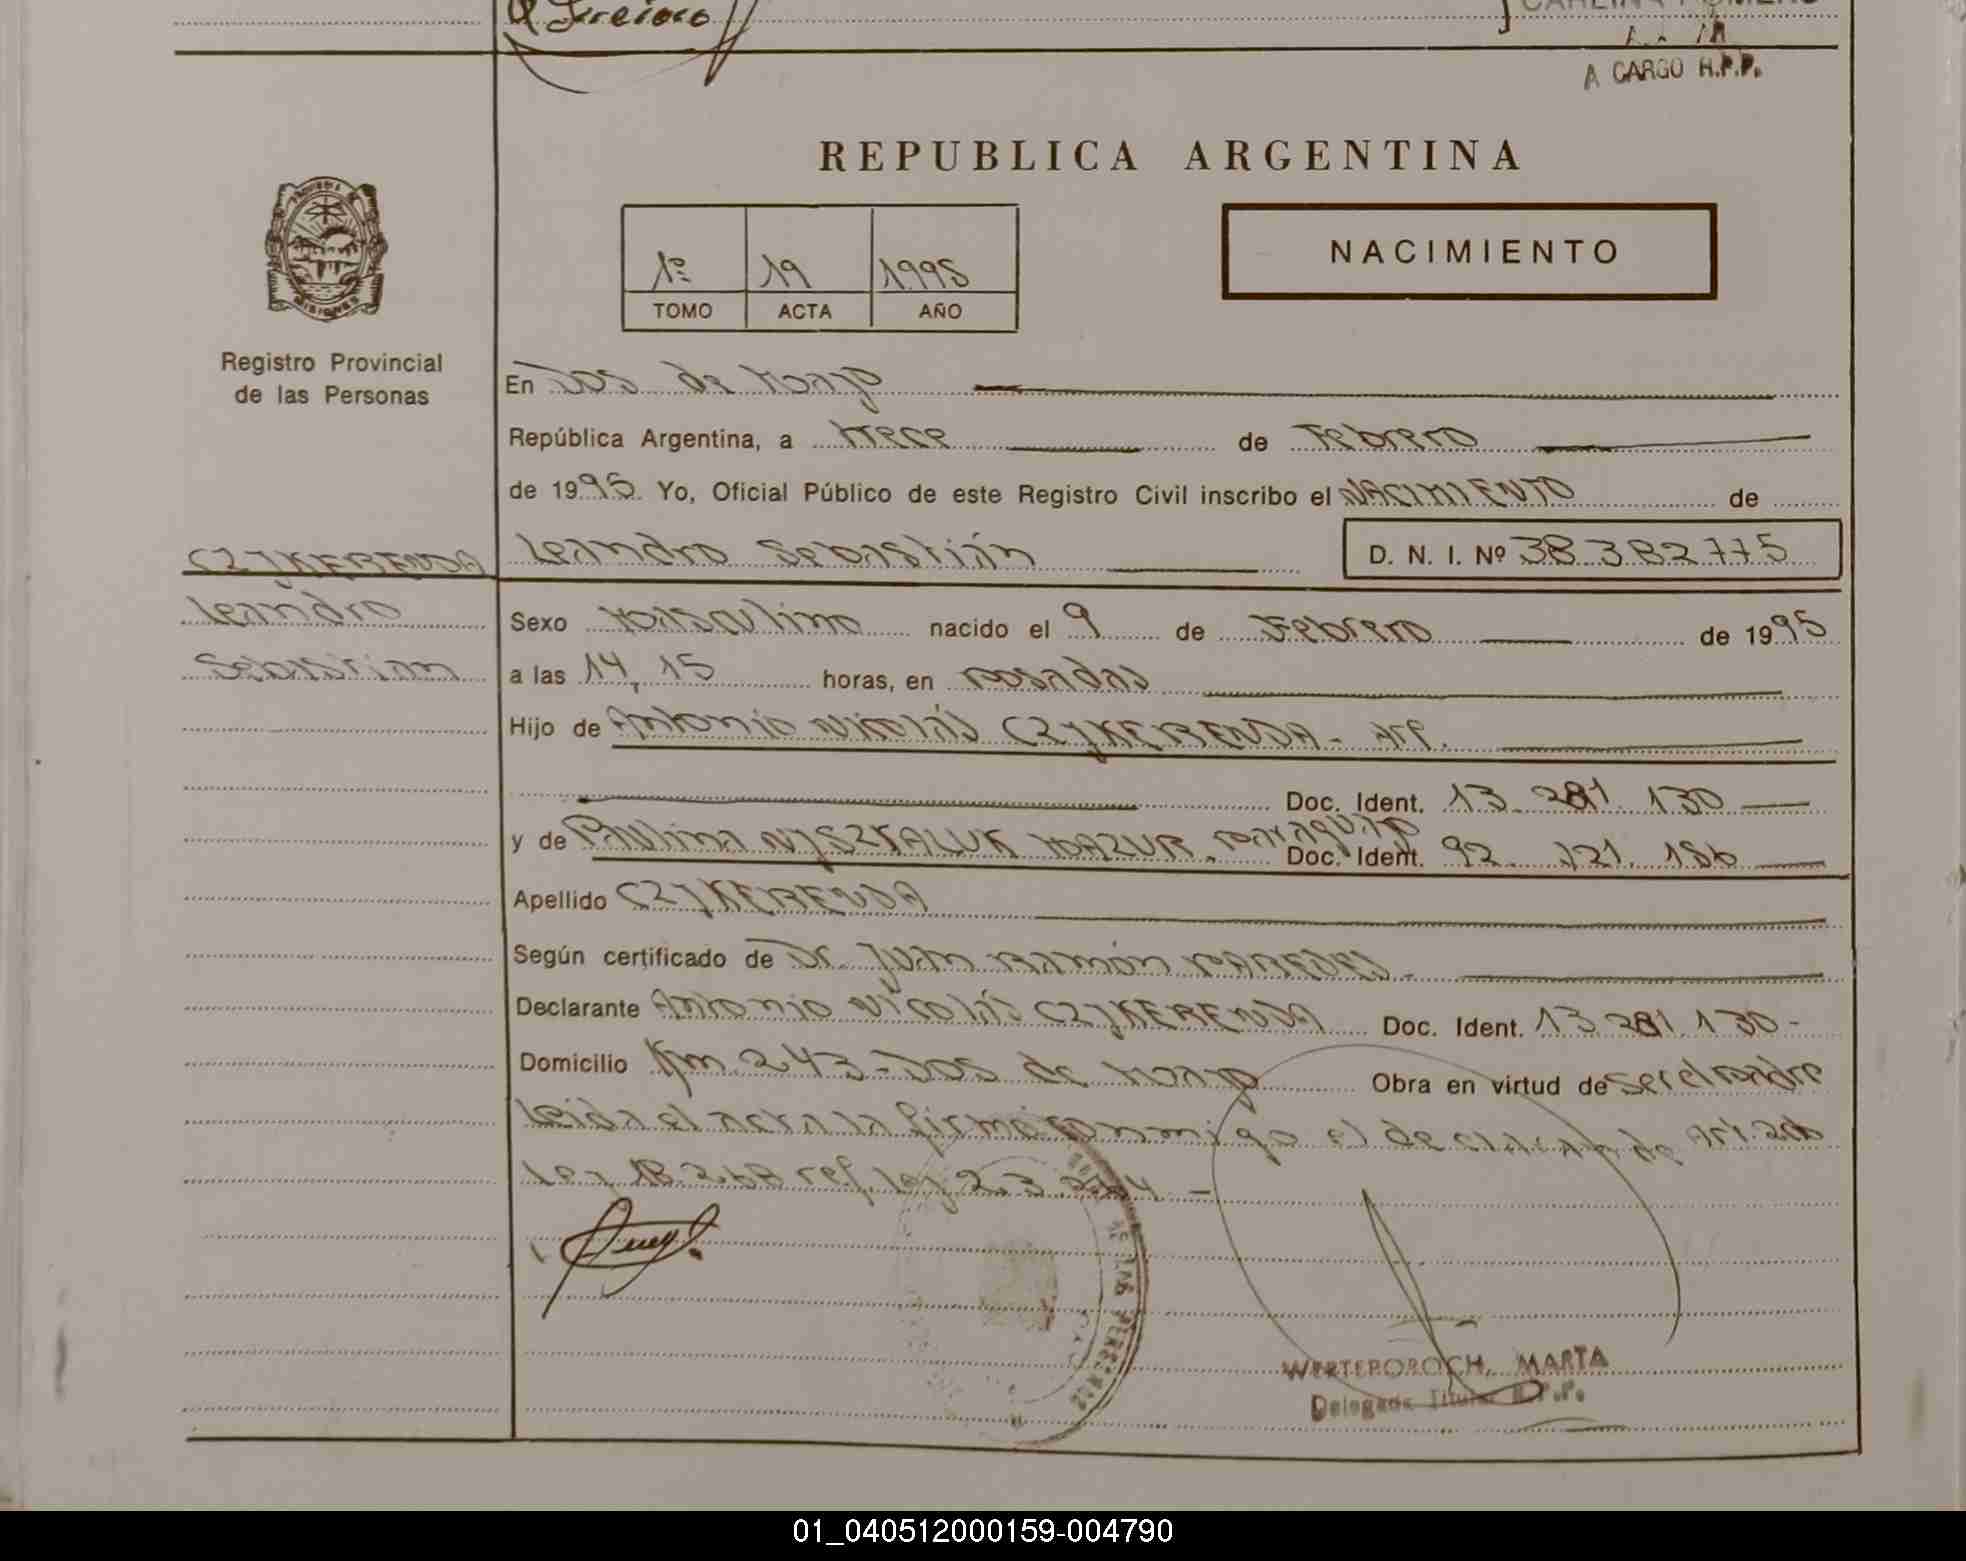 A CARGO R.P.P.
REPUBLICA ARGENTINA
NACIMIENTO
1º 19 1995
TOMO ACTA AÑO
Registro Provincial
de las Personas
En Dos de Mayo
República Argentina, a trece de Febrero
de 1995 Yo, Oficial Público de este Registro Civil inscribo el NACIMIENTO de
CZYKERENDA Leandro Sebastián D. N. I. Nº 38.382.775
Leandro
Sebastian
Sexo Masculino nacido el 9 de Febrero de 1995
a las 14,15 horas, en Posadas
Hijo de Antonio Nicolás CZYKERENDA - Arg.
Doc. Ident. 13.281.130
y de Paulina NYSZKALUK MAZUR. Paraguayo Doc. Ident. 92.121.186
Apellido CZYKERENDA
Según certificado de Dr. Juan Ramón PAREDES -
Declarante Antonio Nicolás CZYKERENDA Doc. Ident. 13.281.130-
Domicilio Km 243 - Dos de Mayo Obra en virtud de ser el padre
Leida el acta la firma conmigo el declarante Art.
Ley 18.268 ref. Ley
WERTEPOROCH, MARTA
Delegada Titular R.P.P.
01_040512000159-004790